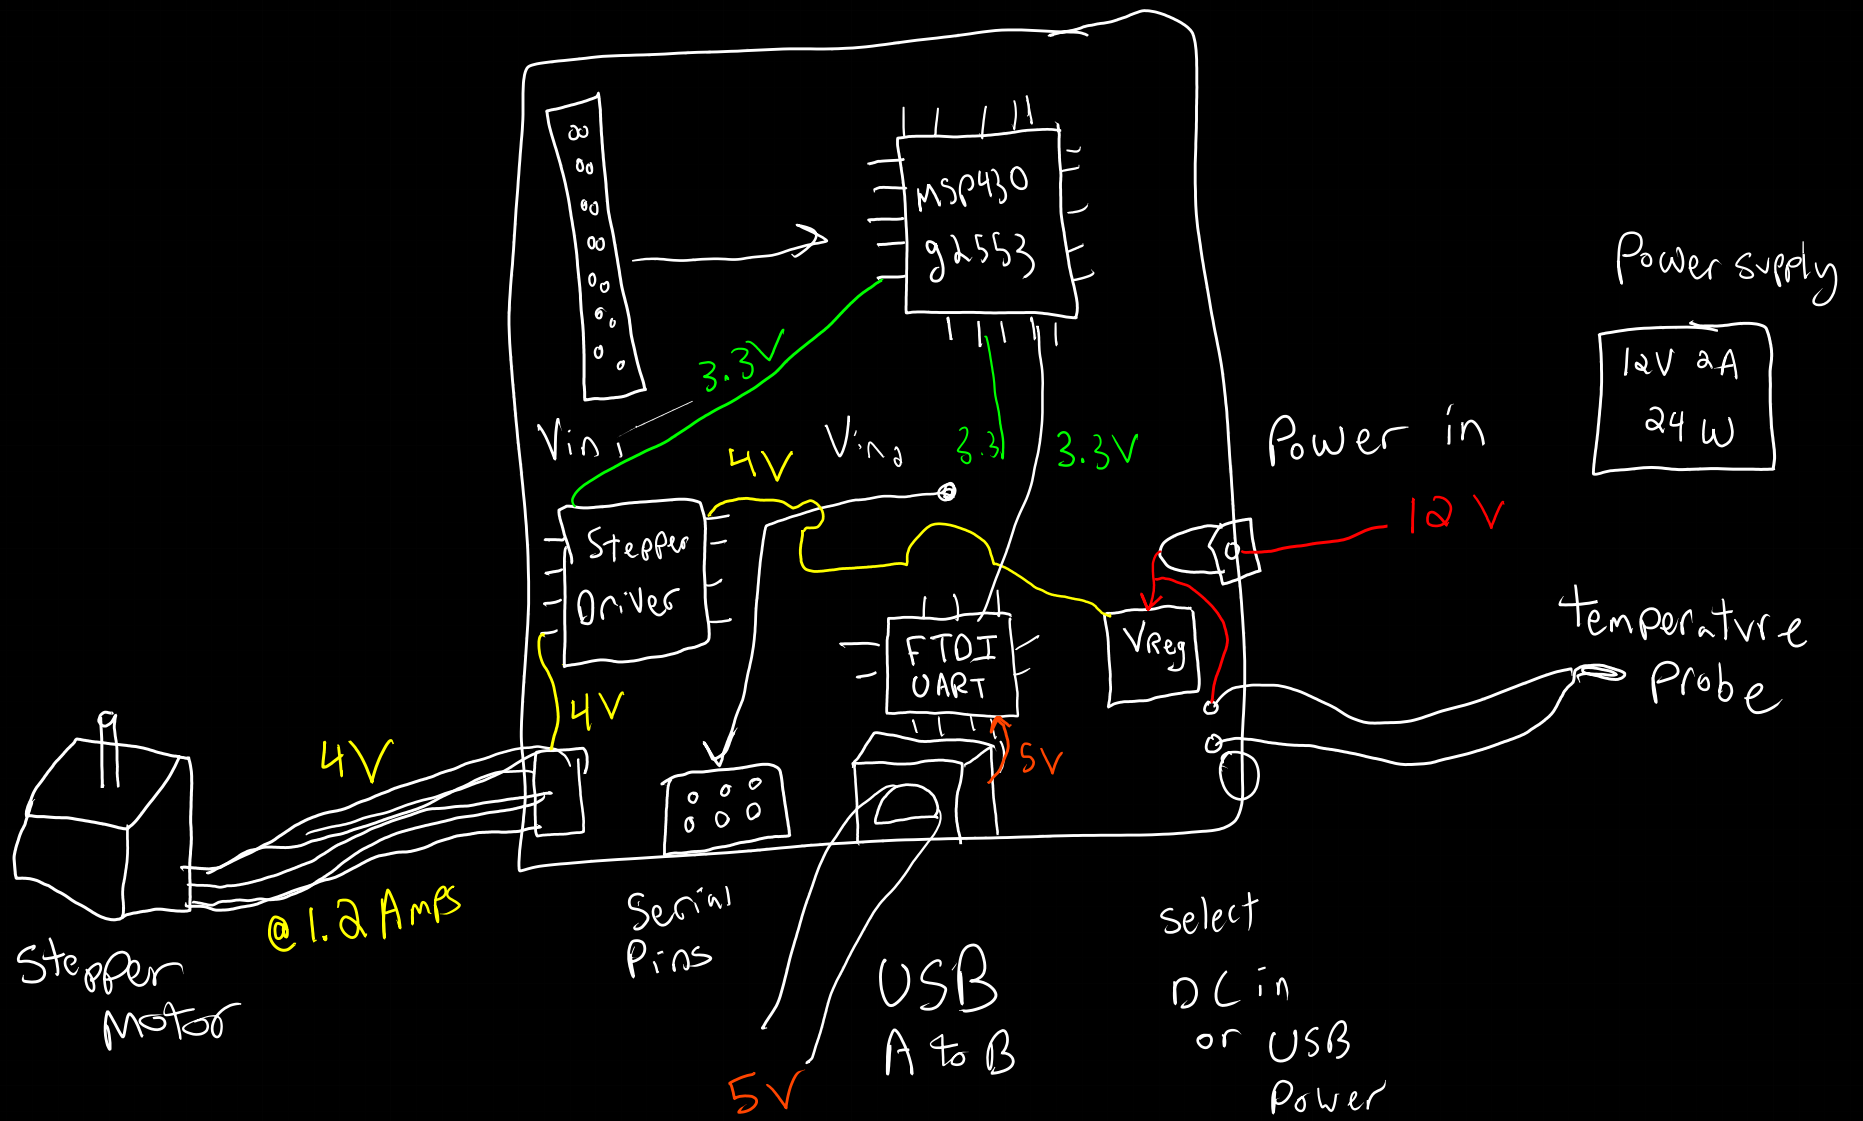 MSP430
g2553
Power supply
12V 2A
24 W
3.3V
Vin1
4V
Vin2
3.3
3.3V
Power in
12 V
Stepper
Driver
FTDI
UART
VReg
temperature
Probe
4V
4V
5V
@1.2 Amps
Serial
Pins
Stepper
Motor
USB
A to B
5V
Select
DC in
or USB
Power